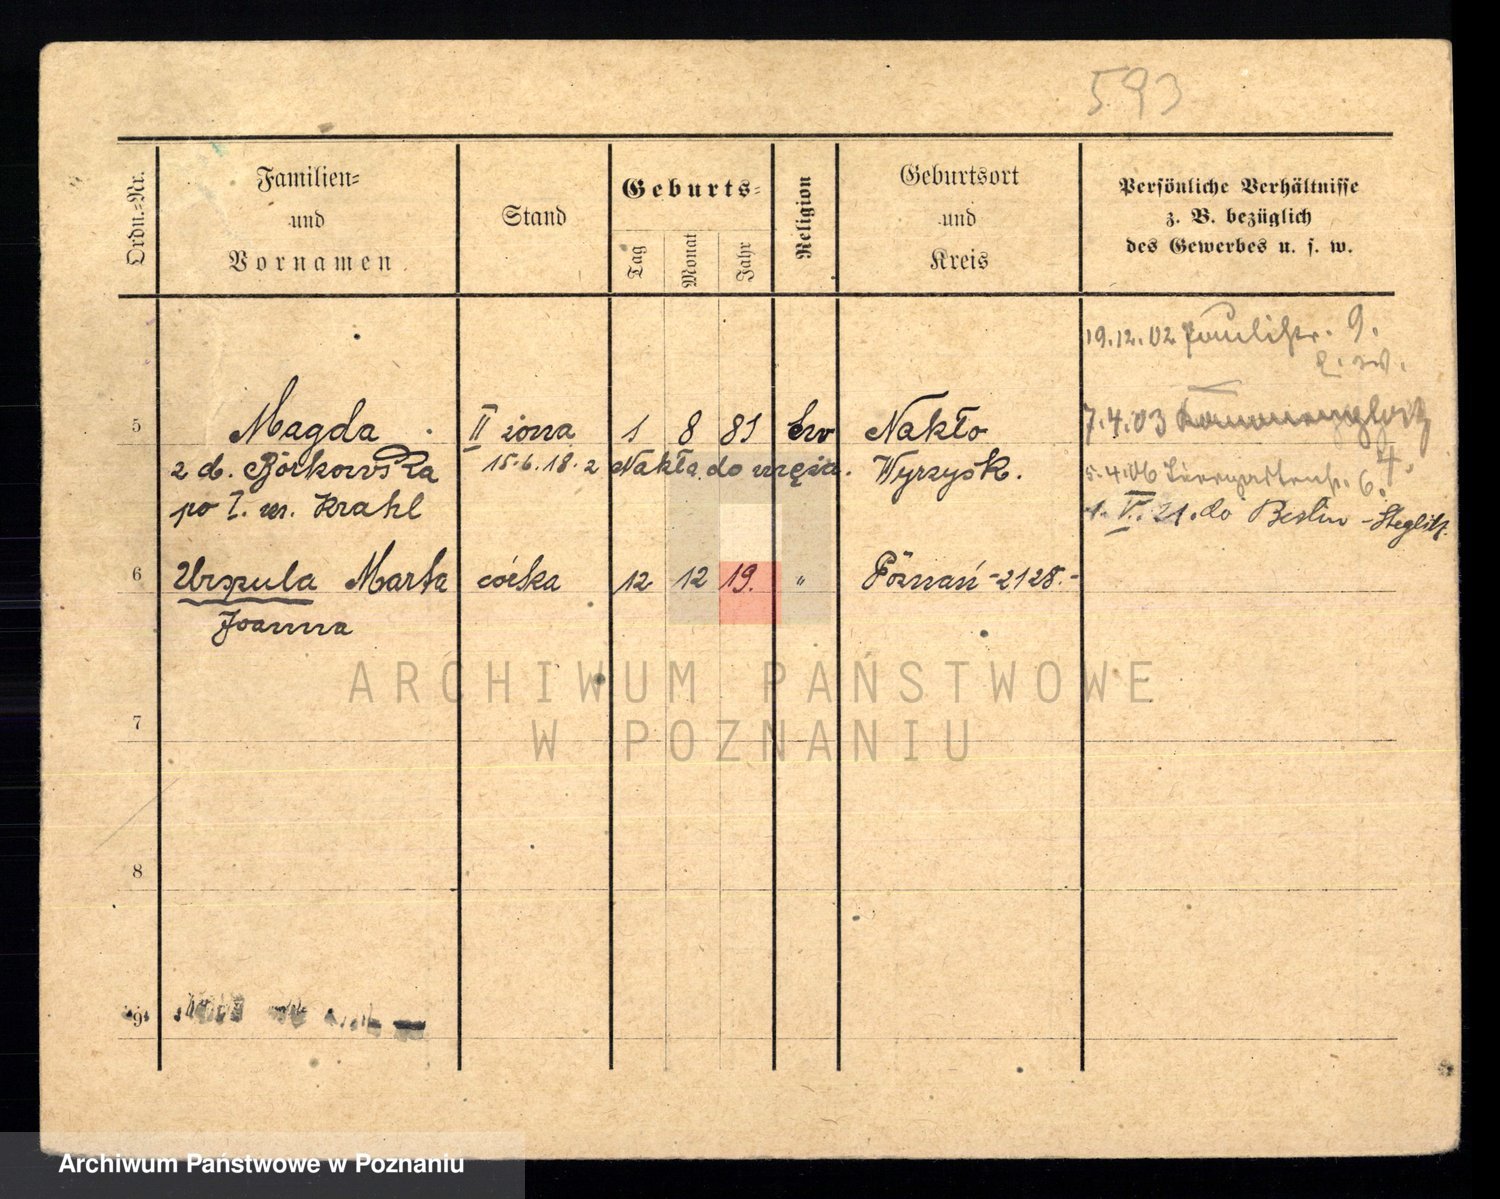 593
Ordn.-Nr.
Familien-
und
Vornamen.
Stand
Geburts-
Tag
Monat
Jahr
Religion
Geburtsort
und
Kreis
Persönliche Verhältnisse
z. B. bezüglich
des Gewerbes u. s. w.
19.12.02 Paulistr. 9.
7.4.03
4.
5.4.06 Tiergartenstr. 6.
1. V. 21. do Berlin - Steglitz
5 Magda II żona 1 8 81 Ew Nakło
z d. Borkowska 15.6.18. z Nakła do męża. Wyrzysk.
po I. m. Krahl
6 Urszula Marta córka 12 12 19. " Poznań - 2128. -
Joanna
7
8
9
ARCHIWUM PAŃSTWOWE
W POZNANIU
Archiwum Państwowe w Poznaniu